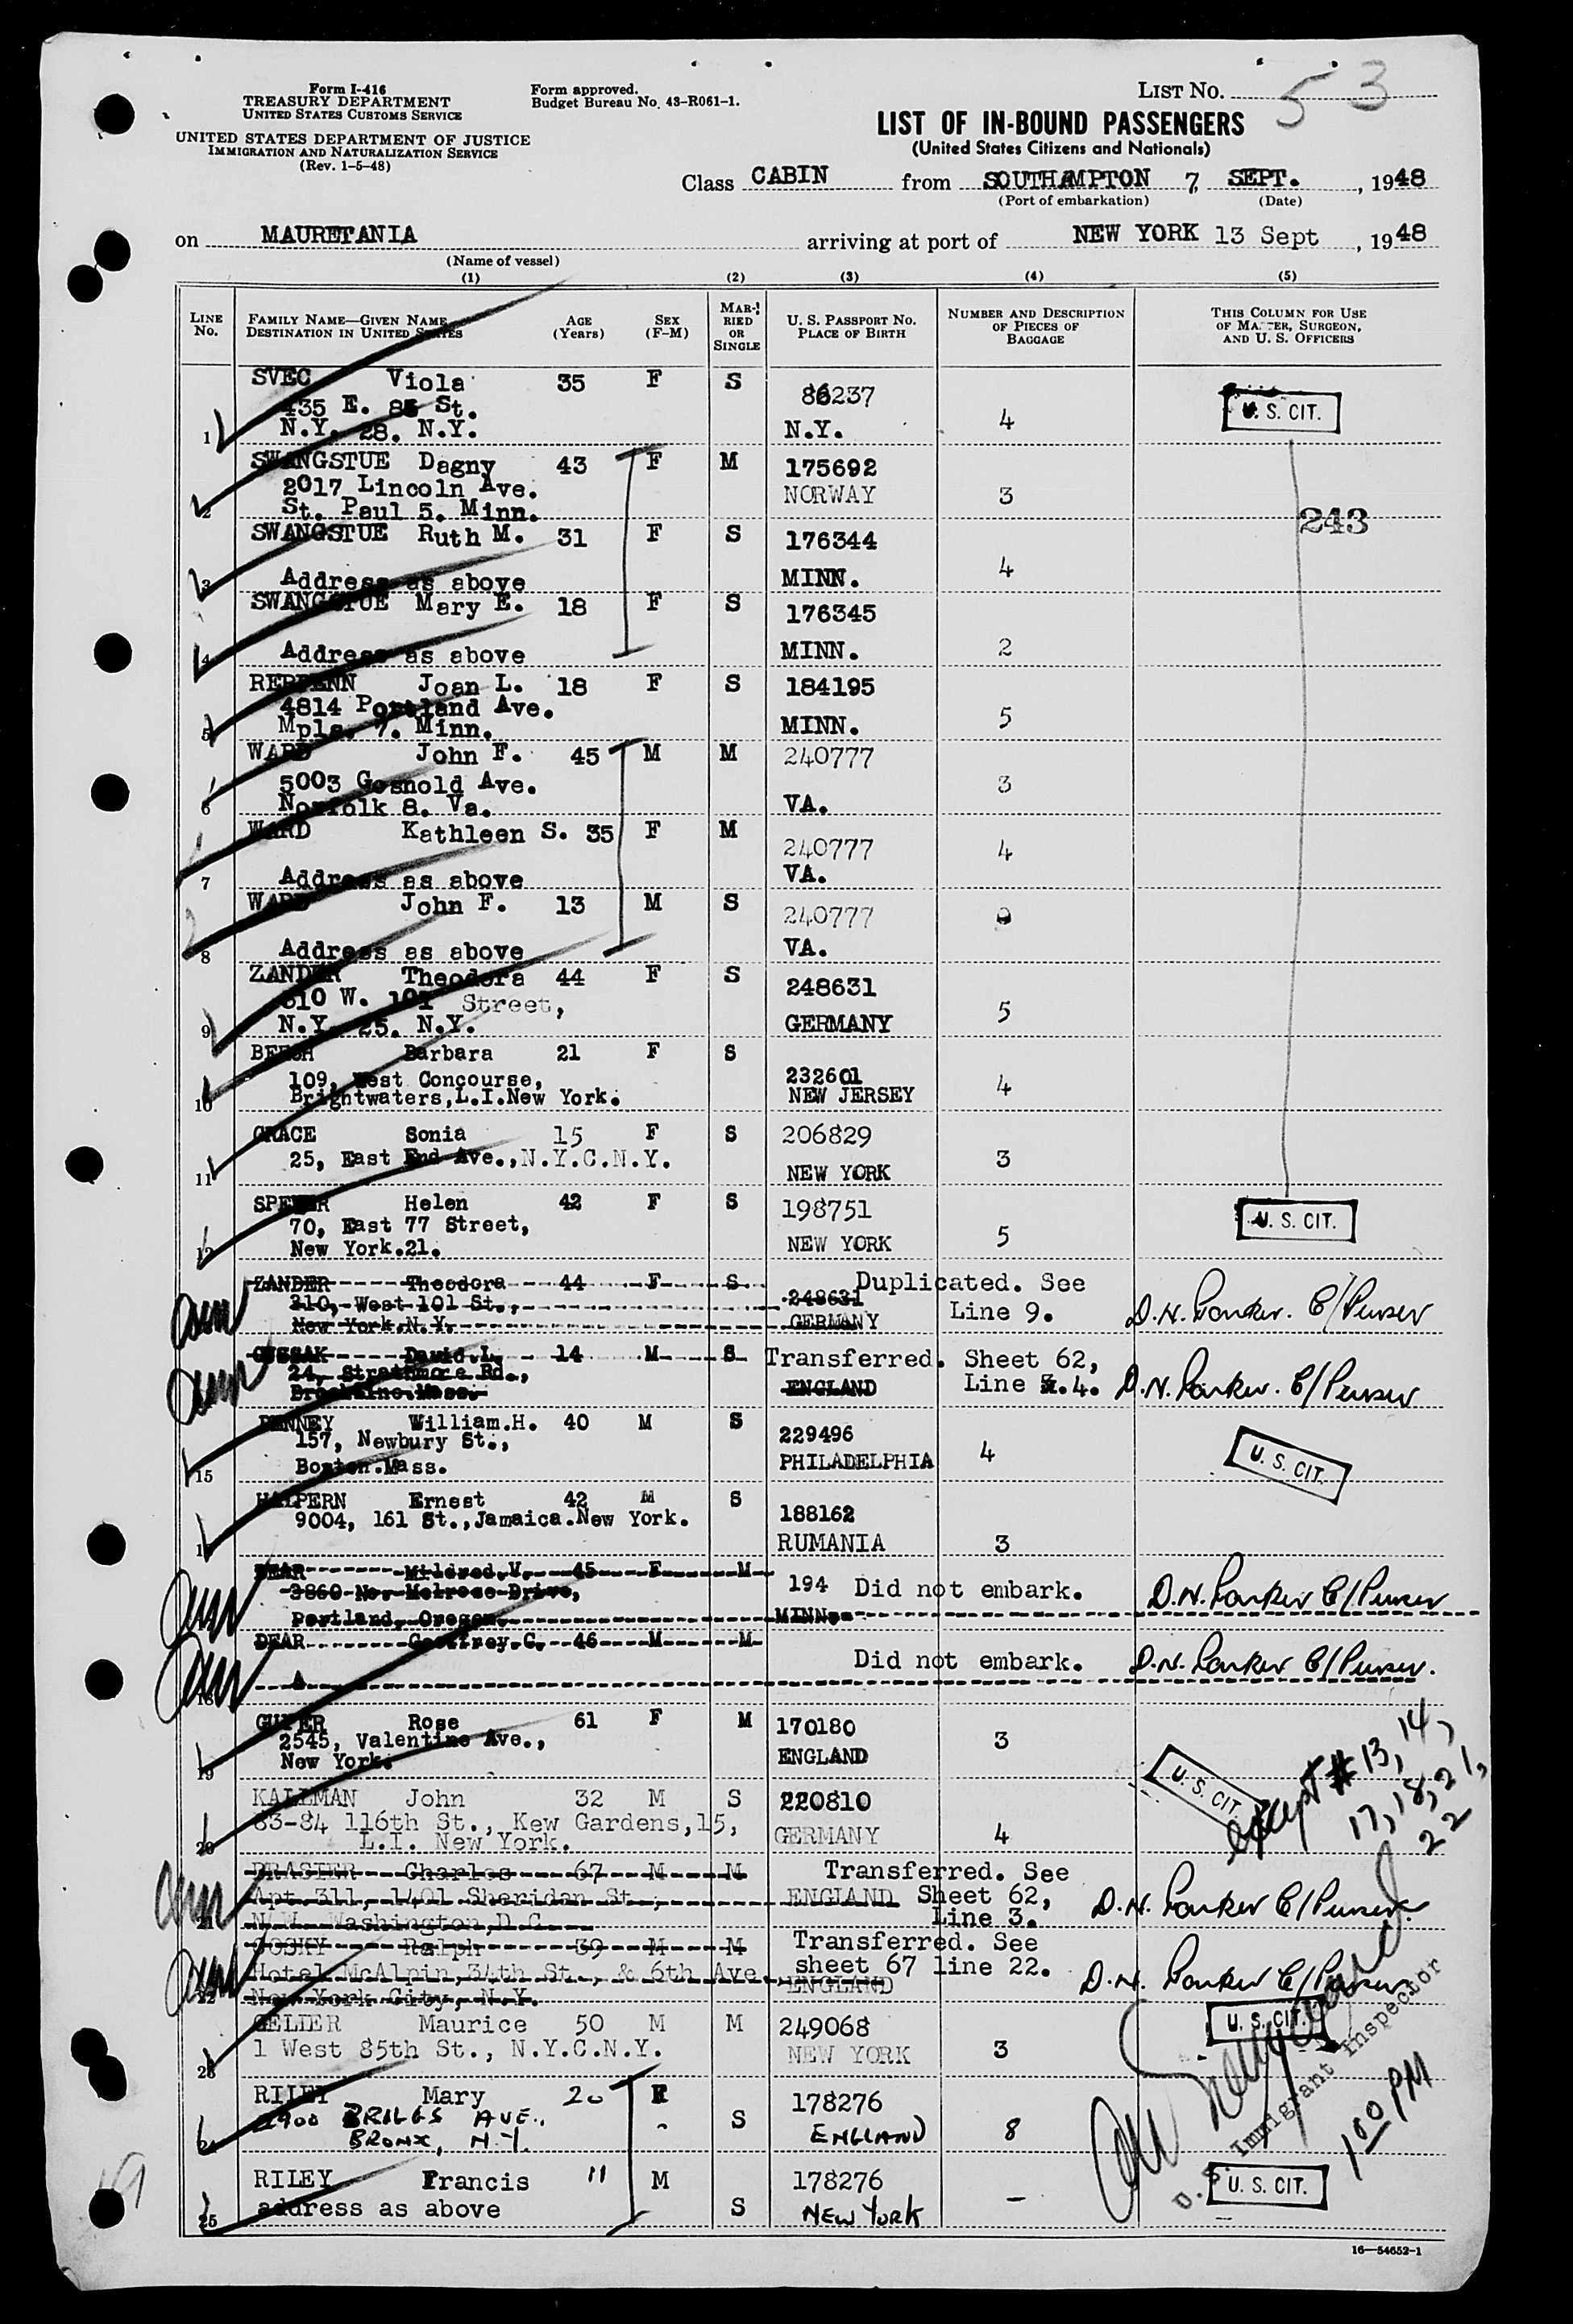 Form I-416
TREASURY DEPARTMENT
UNITED STATES CUSTOMS SERVICE
UNITED STATES DEPARTMENT OF JUSTICE
IMMIGRATION AND NATURALIZATION SERVICE
(Rev. 1-5-48)
Form approved.
Budget Bureau No. 43-R061-1.
LIST NO. 53
LIST OF IN-BOUND PASSENGERS
(United States Citizens and Nationals)
Class CABIN from SOUTHAMPTON 7, SEPT., 1948
(Port of embarkation) (Date)
on MAURETANIA arriving at port of NEW YORK 13 Sept, 1948
(Name of vessel)
(1) (2) (3) (4) (5)
LINE No. FAMILY NAME—GIVEN NAME DESTINATION IN UNITED STATES AGE (Years) SEX (F-M) MARRIED OR SINGLE U. S. PASSPORT NO. PLACE OF BIRTH NUMBER AND DESCRIPTION OF PIECES OF BAGGAGE THIS COLUMN FOR USE OF MASTER, SURGEON, AND U. S. OFFICERS
1 SVEC Viola 35 F S 86237 4 U. S. CIT.
435 E. 85 St.
N.Y. 28. N.Y. N.Y.
2 SWANGSTUE Dagny 43 F M 175692 3
2017 Lincoln Ave. NORWAY
St. Paul 5. Minn.
243
3 SWANGSTUE Ruth M. 31 F S 176344 4
Address as above MINN.
4 SWANGSTUE Mary E. 18 F S 176345 2
Address as above MINN.
5 Joan L. 18 F S 184195 5
4814 Portland Ave.
Mpls. 7. Minn. MINN.
6 WARD John F. 45 M M 240777 3
5003 Gosnold Ave.
Norfolk 8. Va. VA.
7 WARD Kathleen S. 35 F M 240777 4
Address as above VA.
8 WARD John F. 13 M S 240777
Address as above VA.
9 ZANDER Theodora 44 F S 248631 5
310 W. 101 Street,
N.Y. 25. N.Y. GERMANY
10 BEECH Barbara 21 F S 232601 4
109, West Concourse, NEW JERSEY
Brightwaters,L.I.New York.
11 GRACE Sonia 15 F S 206829 3
25, East End Ave.,N.Y.C.N.Y. NEW YORK
12 Helen 42 F S 198751 5 U. S. CIT.
70, East 77 Street,
New York.21. NEW YORK
ZANDER Theodora 44 F S 248631 Duplicated. See
210, West 101 St., Line 9. D.N. Parker. C/Purser
New York.N.Y. GERMANY
CUSSAK David.L. 14 M S Transferred. Sheet 62,
24, Strathmore Rd., ENGLAND Line 4. D.N. Parker. C/Purser
Brookline.Mass.
15 DENNEY William.H. 40 M S 229496 4 U. S. CIT.
157, Newbury St., PHILADELPHIA
Boston.Mass.
HALPERN Ernest 42 M S 188162 3
9004, 161 St.,Jamaica.New York. RUMANIA
DEAR Mildred.V. 45 F M 194 Did not embark. D.N. Parker C/Purser
3860 No. Melrose Drive,
Portland, Oregon. MINN.
18 DEAR Geoffrey.C. 46 M M Did not embark. D.N. Parker C/Purser.
19 GUPER Rose 61 F M 170180 3
2545, Valentine Ave.,
New York. ENGLAND
U. S. CIT.
except # 13, 14,
17, 18, 21,
22
20 KALLMAN John 32 M S 220810 4
83-84 116th St., Kew Gardens,15,
L.I. New York. GERMANY
21 PRASIER Charles 67 M M Transferred. See
Apt. 311, 1401 Sheridan St., ENGLAND Sheet 62,
N.W. Washington,D.C. Line 3. D.N. Parker C/Purser.
22 Ralph 39 M M Transferred. See
Hotel McAlpin,34th St., & 6th Ave. sheet 67 line 22. D.N. Parker C/Purser
New York City, N.Y. ENGLAND
23 GELIER Maurice 50 M M 249068 3 U. S. CIT.
1 West 85th St., N.Y.C.N.Y. NEW YORK
24 RILEY Mary 20 F S 178276 8
2900 BRIGGS AVE.,
BRONX, N.Y. ENGLAND
U. S. Immigrant Inspector
1 00 PM
25 RILEY Francis 11 M S 178276 — U. S. CIT.
address as above NEW YORK
16—54652-1